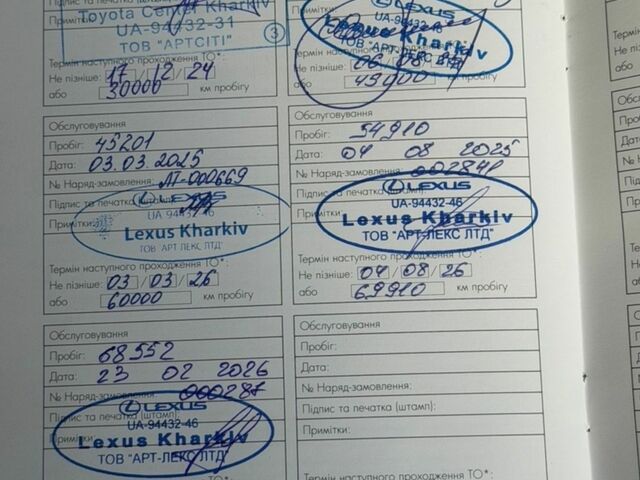 Підпис та печатка
Toyota Center Kharkiv
UA-94432-31
ТОВ "АРТСІТІ"
3
Термін наступного проходження ТО*:
Не пізніше: 17 / 12 / 24
або 30000 км пробігу
Примітки
LEXUS
UA-94432-46
Kharkiv
Термін наступного проходження ТО*:
Не пізніше: 06 / 08
або 45000 км пробігу
Обслуговування
Пробіг: 45201
Дата: 03.03.2025
№ Наряд-замовлення: ЛТ-000669
Підпис та печатка (штамп):
Примітки:
LEXUS
UA-94432-46
Lexus Kharkiv
ТОВ "АРТ-ЛЕКС ЛТД"
Термін наступного проходження ТО*:
Не пізніше: 03 / 03 / 26
або 60000 км пробігу
Обслуговування
Пробіг: 54910
Дата: 04 08 2025
№ Наряд-замовлення: 002841
Підпис та печатка (штамп):
Примітки
LEXUS
UA-94432-46
Lexus Kharkiv
ТОВ "АРТ-ЛЕКС ЛТД"
Термін наступного проходження ТО*:
Не пізніше: 04 / 08 / 26
або 69910 км пробігу
Обслуговування
Пробіг: 68552
Дата: 23 02 2026
№ Наряд-замовлення:
Підпис та печатка (штамп):
Примітки
LEXUS
UA-94432-46
Lexus Kharkiv
ТОВ "АРТ-ЛЕКС ЛТД"
Обслуговування
Пробіг:
Дата:
№ Наряд-замовлення:
Підпис та печатка (штамп):
Примітки:
Термін наступного проходження ТО*: